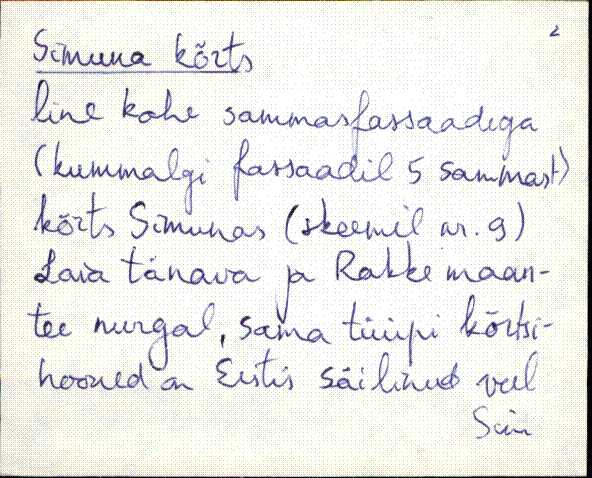 2
Simuna kõrts
line kahe sammasfassaadiga
(kummalgi fassaadil 5 sammast)
kõrts Simunas (skeemil nr. 9)
Laia tänava ja Rakke maan-
tee nurgal, sama tüüpi kõrtsi-
hooned on Eestis säilinud veel